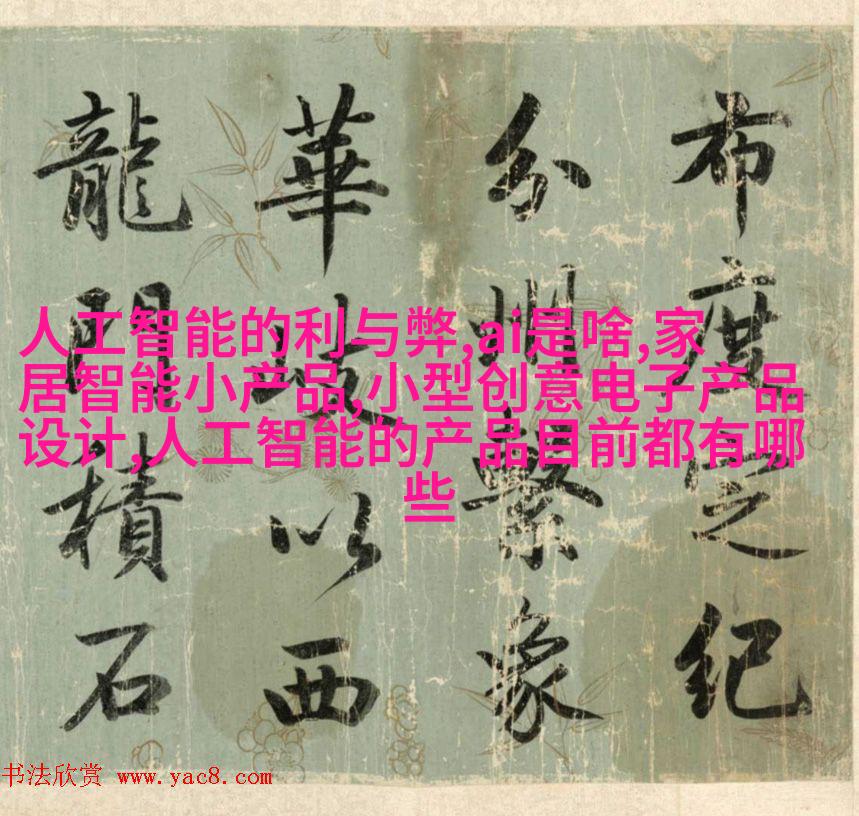 布度定紀
分州繫象
華坂以西
龍門積石
人工智能的利与弊,ai是啥,家
居智能小产品,小型创意电子产品
设计,人工智能的产品目前都有哪
些
书法欣赏 www.yac8.com